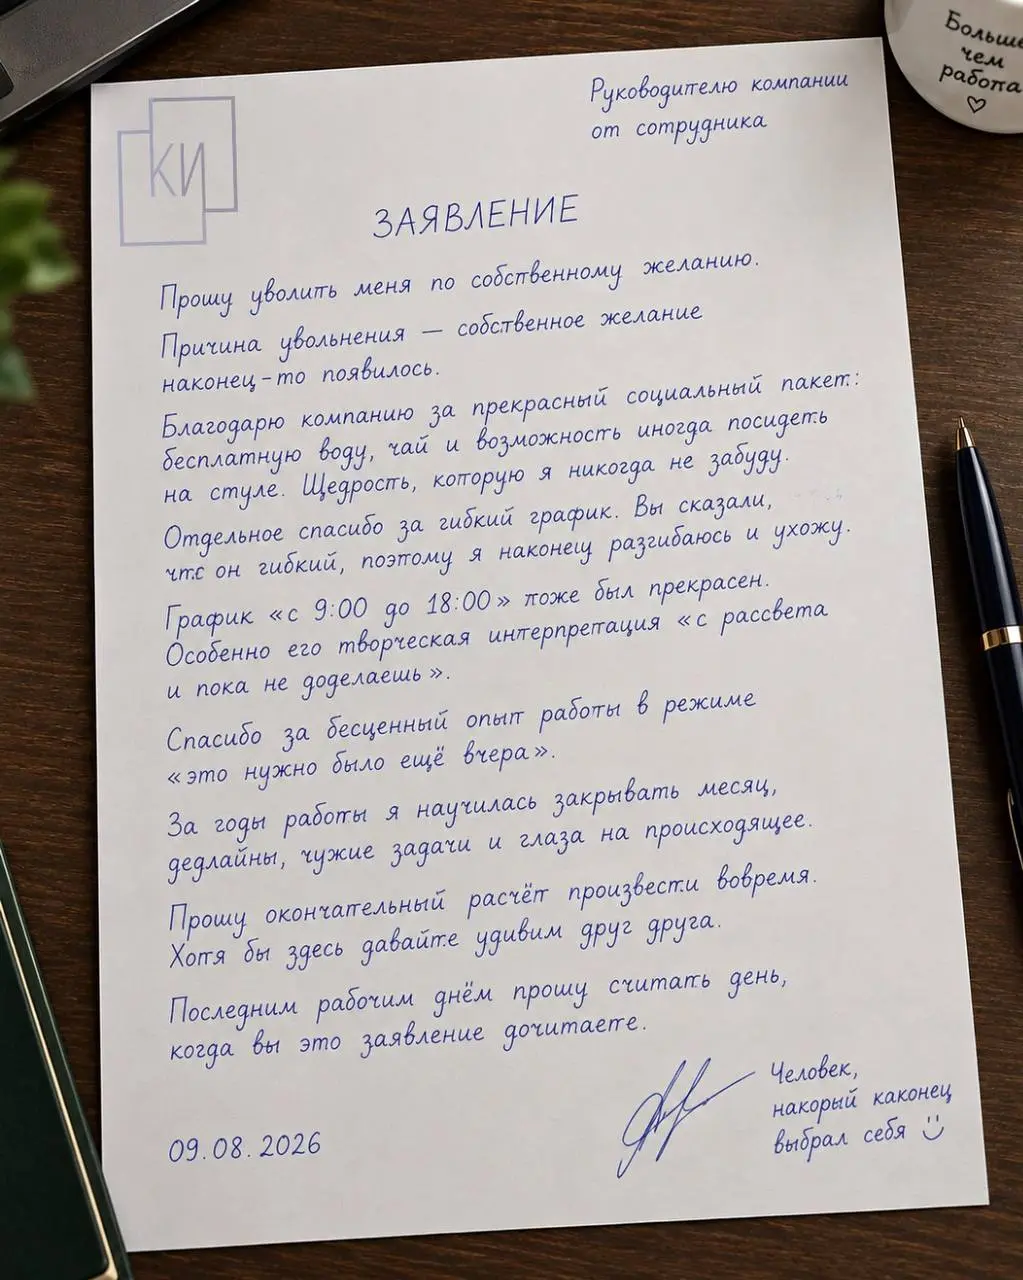 Больше
чем
работа
КИ
Руководителю компании
от сотрудника
ЗАЯВЛЕНИЕ
Прошу уволить меня по собственному желанию.
Причина увольнения — собственное желание
наконец-то появилось.
Благодарю компанию за прекрасный социальный пакет:
бесплатную воду, чай и возможность иногда посидеть
на стуле. Щедрость, которую я никогда не забуду.
Отдельное спасибо за гибкий график. Вы сказали,
чтс он гибкий, поэтому я наконец разгибаюсь и ухожу.
График «с 9:00 до 18:00» тоже был прекрасен.
Особенно его творческая интерпретация «с рассвета
и пока не доделаешь».
Спасибо за бесценный опыт работы в режиме
«это нужно было ещё вчера».
За годы работы я научилась закрывать месяц,
дедлайны, чужие задачи и глаза на происходящее.
Прошу окончательный расчёт произвести вовремя.
Хотя бы здесь давайте удивим друг друга.
Последним рабочим днём прошу считать день,
когда вы это заявление дочитаете.
Человек,
накорый каконец
выбрал себя
09.08.2026